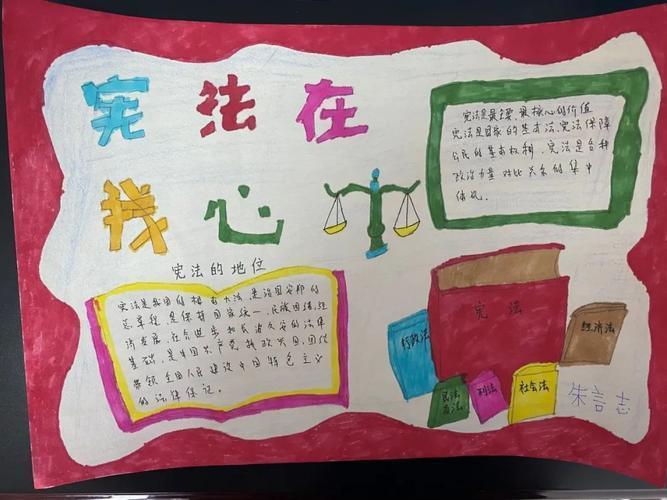 宪法在
我心
宪法是最重要、最核心的价值
宪法是国家的基本法，宪法保障
公民的基本权利，宪法是各种
政治力量 对比关系的集中
体现。
宪法的地位
宪法是我国的根本大法，是治国安邦的
总章程，是保持国家统一，民族团结，经
济发展，社会进步和长治久安的法律
基础，是中国共产党执政兴国，团结
带领全国人民建设中国特色主义
的法律保证。
宪法
行政法
经济法
民法
商法
刑法
社会法
朱言志